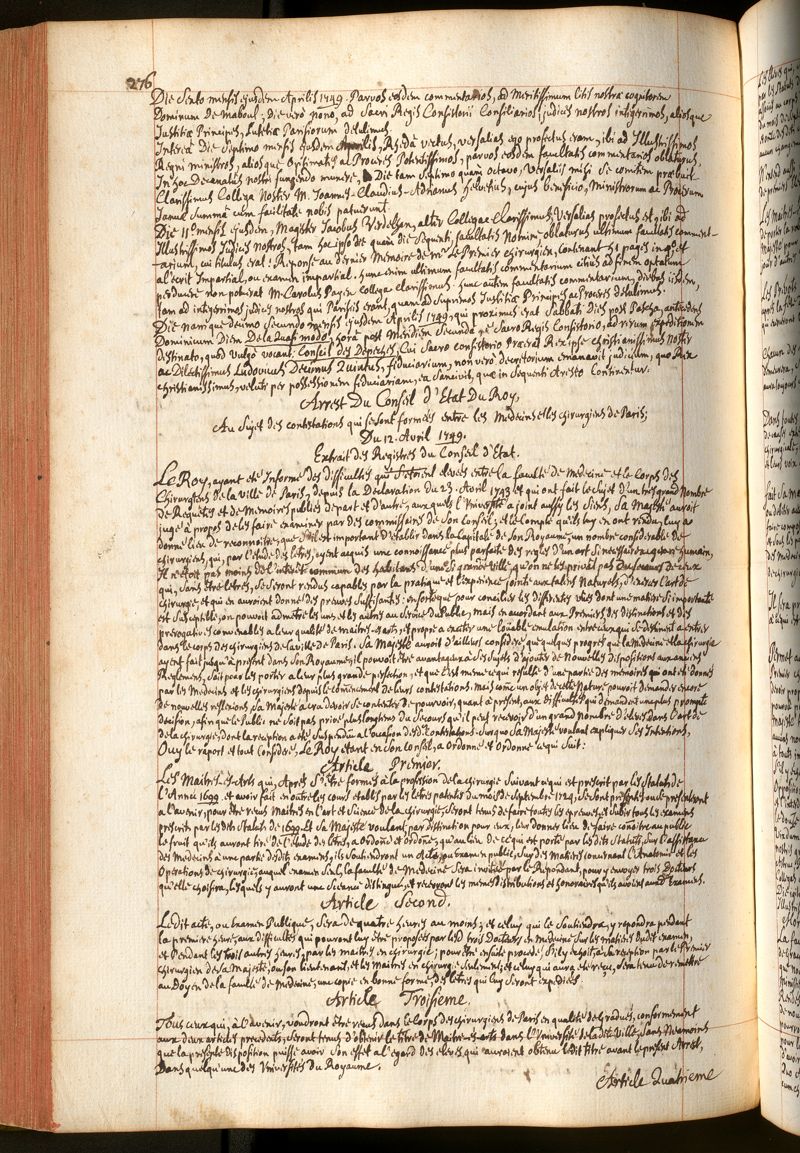 276
Die Sexto mensis ejusdem Aprilis 1749. Parvos eosdem commentarios, ad Meritissimum litis nostræ cognitorem
Dominum de Maboul; die verò nono, ad Sacri Regis Consistorii Consiliarios, judices nostros integerrimos, aliosque
Justitiæ Principes, Lutetiæ Parisiorum detulimus.
Interea Die Septimo mensis ejusdem Aprilis, Rhedâ vectus, versalias ego profectus eram, ibi ad Illustrissimos
Regni ministros, aliosque Optimates ac Proceres Potentissimos, parvos eosdem facultatis commentarios oblaturus,
In hoc Decanatûs nostri fungendo munere, Die tam septimo quam octavo, versaliis mihi se comitem præbuit
Clarissimus Collega Noster M. Joannes-Claudius-Adrianus helvetius, cujus beneficio, Ministrorum ac Procerum
Januæ Summâ cum facilitate nobis patuerunt.
Die 11º mensis ejusdem, Magister Jacobus Verdelhan, alter Collega Clarissimus, versalias profectus est, ibi ad
Illustrissimos Judices nostros, tam hoc ipso die quam die sequenti, facultatis Nomine oblaturus ultimum facultatis comment-
-arium, cui titulus erat: Réponse au dernier Memoire de Mr. Le Premier chirurgien, contenant 54 pages in 4º. et
à l'écrit Impartial, ou examen impartial. hunc enim ultimum facultatis commentarium citius ad finem optatum
perducere non poterat M. Carolus Payen collega clarissimus. hunc autem facultatis commentarium, diebus iisdem,
tam ad integerrimos judices nostros qui Parisiis erant, quam ad supremos Justitiæ Principes ac Proceres detulimus.
Die Denique decimo secundo mensis ejusdem Aprilis 1749, qui proximus erat Sabbati dies post Pascha, antecedens
Dominicum Diem De la Quasimodo, horâ post Meridiem secundâ in Sacro Regis Consistorio, ad rerum expeditionem
destinato, quod vulgo vocant, Conseil des Depêches, Cui Sacro consistorio Præerat Rex ipse christianissimus noster
ac Delectissimus Ludovicus Decimus Quintus, fiduciarium, non verò decretorium emanavit judicium, quo Rex
christianissimus, veluti per possessionem fiduciariam, ea Sancivit, quæ in Sequenti Aresto Continentur.
Arrest Du Conseil d'Etat Du Roy,
Au Sujet des contestations qui se sont formées entre les Medecins et les chirurgiens de Paris;
Du 12. Avril 1749.
Extrait des Registres du Conseil d'Etat.
Le Roy, ayant eté Informé des difficultés qui s'étoient elevées entre la faculté de Medecine et le Corps des
Chirurgiens de la ville de Paris, depuis la Declaration du 23. Avril 1743 et qui ont fait le sujet d'un très grand Nombre
de Requêtes et de Memoires publiés de part et d'autre, auxquels l'Université a joint aussi les siens, Sa Majesté auroit
jugé à propos de les faire examiner par des commissaires de son Conseil; et le compte qu'ils luy en ont rendu, luy a
donné lieu de reconnoitre, que s'il est important d'établir dans la Capitale de son Royaume, un nombre considerable de
chirurgiens, qui, par l'étude des letres, ayent acquis une connoissance plus parfaite des regles d'un art si necessaire au genre humain,
Il n'etoit pas moins de l'interêt commun des habitans d'une si grande ville, qu'on ne les privât pas du secours de ceux
qui, sans être letrés, se seront rendus capables par la pratique et l'experience jointe aux talens Naturels, d'exercer l'art de
chirurgie, et qui en auroient donné des preuves suffisantes: ensorte que pour concilier les differentes vües dont une matiere si importante
est susceptible, on pouvoit admettre les uns et les autres au service du Public, mais en accordant aux Premiers des distinctions et des
prerogatives convenables à leur qualité de maitres-es-arts, et propres à exciter une loüable emulation entre ceux qui se destinent à entrer
dans le corps des chirurgiens de la ville de Paris. Sa Majesté auroit d'ailleurs consideré, que quelques progrès que la medecine et la chirurgie
ayent fait jusqu'à present dans son Royaume, il pouvoit être avantageux à ses sujets d'ajouter de Nouvelles dispositions aux anciens
Reglemens, soit pour les porter à leur plus grande perfection, et que c'est même ce qui resulte d'une partie des memoires qui ont eté donnés
par les Medecins et les chirurgiens depuis le commencement de leurs contestations. mais comme un objet de cette Nature pouvoit demander encore
de nouvelles reflexions, sa Majesté a cru devoir se contenter de pourvoir, quant à present, aux difficultés qui demandent une plus prompte
decision, afin que le Public ne soit pas privé plus longtems du secours qu'il peut recevoir d'un grand Nombre d'eleves dans l'art de
de la chirurgie, dont la reception a eté suspendüe à l'occasion desd. Contestations. Surquoi sa Majesté voulant expliquer ses Intentions,
Ouy le raport et tout consideré, Le Roy etant en son Conseil, a ordonné et ordonne ce qui suit:
Article Premier.
Les Maitres-Es-Arts qui, Après s'être formés à la profession de la chirurgie suivant ce qui est prescrit par les statuts de
l'Année 1699. et avoir fait en outre les cours etablis par les letres patentes du mois de septembre 1724, se sont presentés ou se presenteront
à l'avenir, pour être reçus maitres en l'art et science de la chirurgie, seront tenus de faire toutes les epreuves, et subir tous les examens
prescrits par lesdits statuts de 1699. Et sa Majesté voulant, par distinction pour eux, leur donner lieu de faire conoître au public
le fruit qu'ils auront tiré de l'étude des letres, a ordonné et ordonne, qu'au lieu de ce qui est porté par lesdits statuts, sur l'assistance
des Medecins à une partie desdits examens, ils soutiendront un Acte, ou examen public, sur des matieres concernant l'Anatomie et les
Operations de chirurgie; auquel examen seul, la faculté de Medecine sera invitée par le Repondant, pour y envoyer trois Docteurs
qu'elle choisira, lesquels y auront une seance distinguée, et recevront les mêmes distributions et honoraires qu'ils avoient auxd. Examens.
Article Second.
Ledit acte, ou Examen Publique, sera de quatre heures au moins; et celuy qui le soutiendra, y repondra pendant
la premiere heure, aux difficultés qui pouront luy être proposées par lesd. trois Docteurs en medecine sur les matieres dudit examen,
et Pendant les trois autres heures, par les maitres en chirurgie; pour être ensuite procedé, s'il y echoit, à sa reception par le Premier
chirurgien de sa Majesté, ou son lieutenant, et les maitres en chirurgie seulement; et celuy qui aura eté reçu, sera tenu de remettre
au Doyen de la faculté de Medecine, une copie en bonne forme, des letres qui luy seront expediées.
Article Troisieme.
Tous ceux qui, à l'avenir, voudront être reçus dans le Corps des chirurgiens de Paris en qualité de Gradués, conformement
aux deux articles precedents, seront tenus d'obtenir le titre de Maitre-es-arts dans l'Université de ladite Ville, sans Neamoins
que la presente disposition puisse avoir son effet à l'egard des eleves qui auroient obtenu ledit titre avant le present Arrest,
Dans quelqu'une des Universités du Royaume.
Article Quatrieme